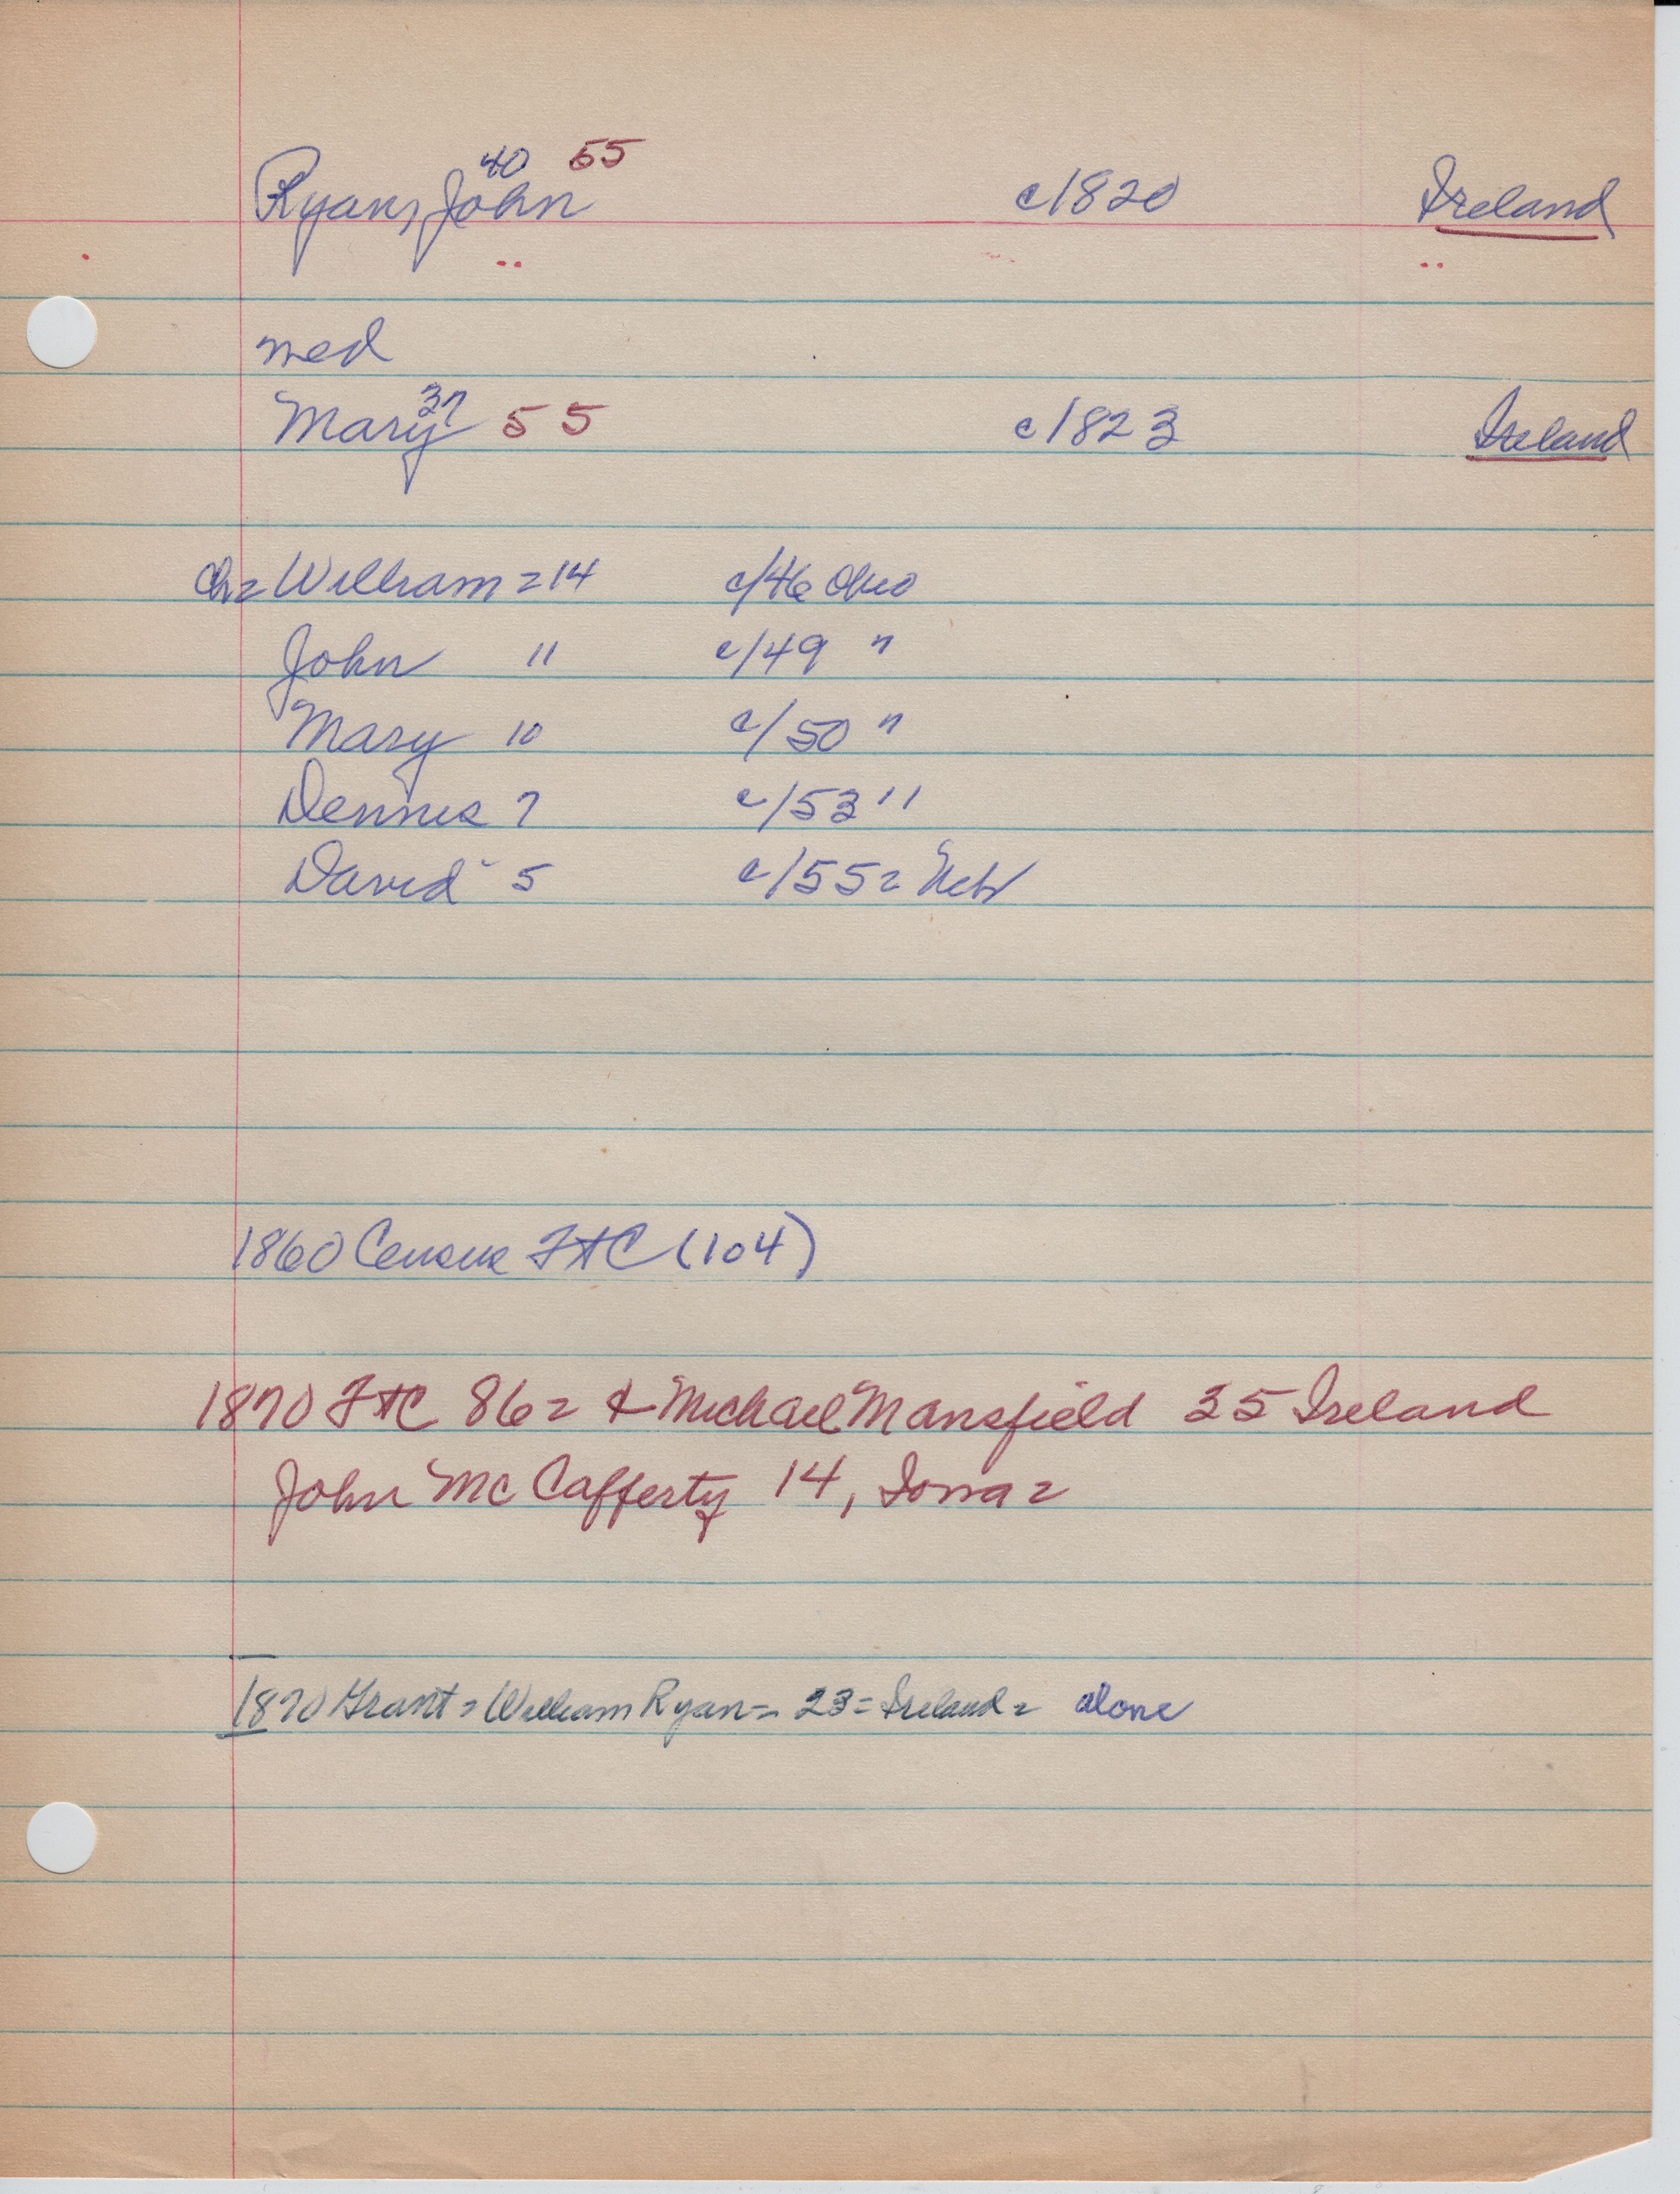 40 55
Ryan, John c/1820 Ireland
med
37
Mary 55 c/1823 Ireland
Ch= William = 14 c/46 Ohio
John 11 c/49 "
Mary 10 c/50 "
Dennis 7 c/53 "
David - 5 c/55 = Neb
1860 Census FtC (104)
1870 FtC 86 = & Michael Mansfield 35 Ireland
John McCafferty 14, Iowa =
1870 Grant = William Ryan = 23 = Ireland = alone